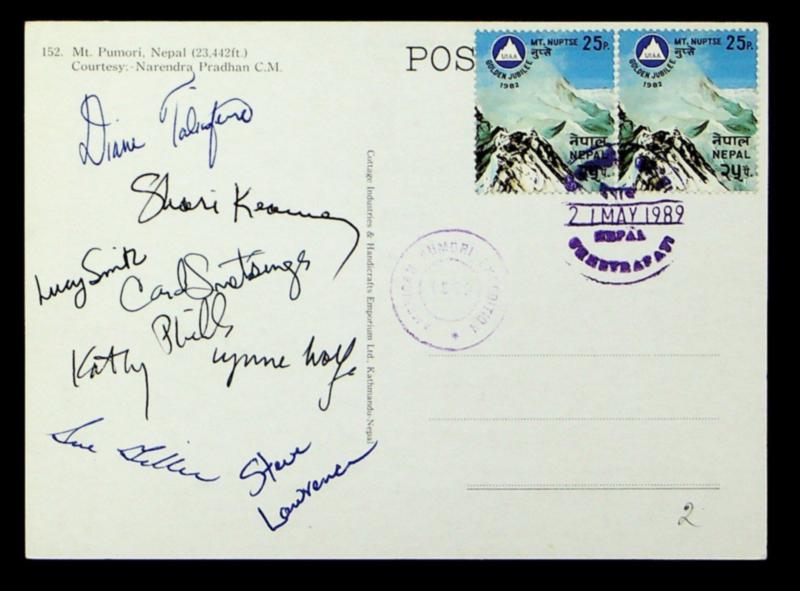 152. Mt. Pumori, Nepal (23,442ft.)
Courtesy:-Narendra Pradhan C.M.
POS
UIAA
GOLDEN JUBILEE
1982
MT. NUPTSE 25P.
नुप्से
नेपाल
NEPAL
UIAA
GOLDEN JUBILEE
1982
MT. NUPTSE 25P.
नुप्से
नेपाल
NEPAL
२५ पै.
21 MAY 1989
NEPAL
CHHETRAPATI
AMERICAN PUMORI EXPEDITION
Diane
Shari Kearney
Lucy Smith
Carol
Kathy Phibbs
Lynne Wolfe
Sue Giller
Steve
Lawrence
Cottage Industries & Handicrafts Emporium Ltd., Kathmandu-Nepal
2